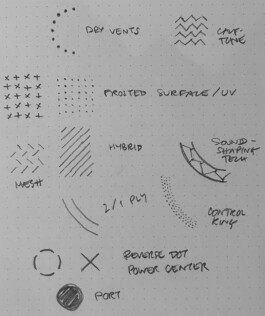 DRY VENTS
TONE
FROSTED SURFACE/UV
HYBRID
SOUND-
SHAPING
TECH
MESH
2/1 PLY
CONTROL
RING
REVERSE DOT
POWER CENTER
PORT